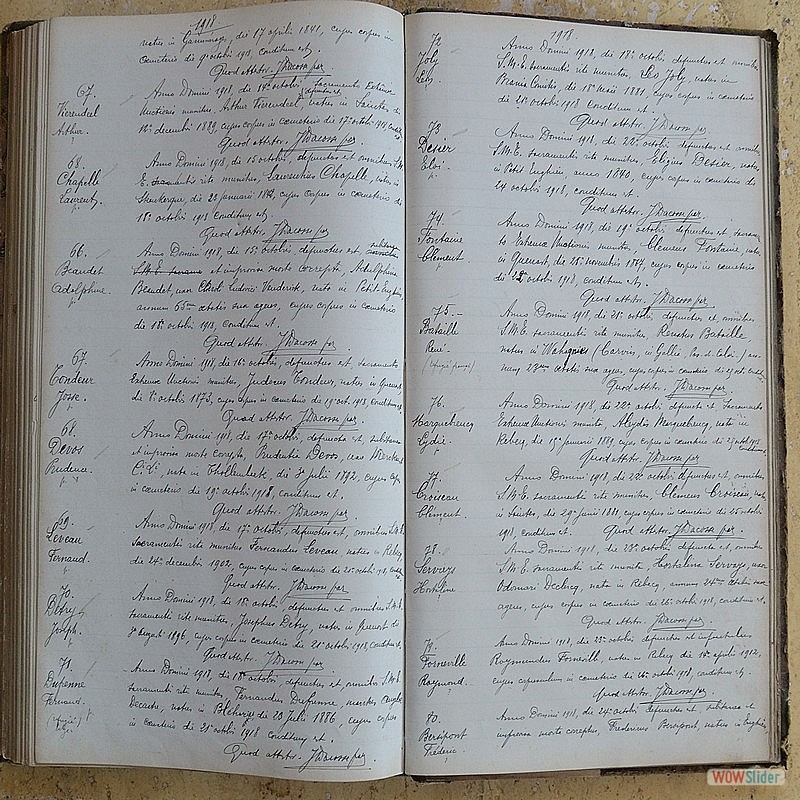 1918
natus in Gammerages, die 17 aprilis 1841, cujus corpus in
cœmeterio die 9 octobris 1918, conditum et.
Quod attstor. J Dacosse par.
67.
Vierendeel
Arthur.
Anno Domini 1918, die 14a octobris, Sacramento Extremæ
defunctus et
Unctionis munitus, Arthur Vierendeel, natus in
decembri 1889, cujus corpus in cœmeterio die 17a octobris 1918,
Quod attstor. J Dacosse par.
68.
Chapelle
Laurent.
Anno Domini 1918, die 15 octobris, defunctus et omnibus S.M.
E. sacramentis rite munitus, Laurentius Chapelle, natus in
Steenkerque, die 22 januarii cujus corpus in cœmeterio die
18a octobris 1918 conditum et.
Quod attstor. J Dacosse par.
66.
Beaudet
Adolphine.
Anno Domini 1918, die 15a octobris, defuncta et subitanea
et improvisa morte correpta, Adolphina
Beaudet, uxor Ludovici Vanderick, nata in Petit Enghien,
annum 65um ætatis suæ agens, cujus corpus in cœmeterio
die 18a octobris 1918, conditum et.
Quod attstor. J Dacosse par.
67
Tondeur
Josse.
Anno Domini 1918, die 16a octobris, defunctus et, Sacramento
Extremæ Unctionis munitus, Judocus Tondeur, natus in Quenast,
die 8a octobris 1873, cujus corpus in cœmeterio die 19 oct. 1918, conditum et.
Quod attstor. J Dacosse par.
68.
Devos
Prudence.
Anno Domini 1918, die 17a octobris, defuncta et, subitanea
et improvisa morte correpta, Prudentia Devos, uxor
nata in Thollembeek, die 3a julii 1892, cujus corpus
in cœmeterio die 19a octobris 1918, conditum et.
Quod attstor. J Dacosse par.
69.
Leveau
Fernand.
Anno Domini 1918, die 17a octobris, defunctus et, omnibus S.M.E.
Sacramentis rite munitus Fernandus Leveau natus in Rebecq,
die 24a decembri 1902, cujus corpus in cœmeterio die 20a octob. 1918,
Quod attstor. J Dacosse par.
70.
Detry
Joseph.
Anno Domini 1918, die 18a octobris, defunctus et omnibus S.M.E.
sacramentis rite munitus, Josephus Detry, natus in Quenast die
3a Augusti 1896, cujus corpus in cœmeterio die 21a octobris 1918, conditum et.
Quod attstor. J Dacosse par.
71.
Dufenne
Fernand.
Anno Domini 1918, die 18a octobris, defunctus et, omnibus S.M.E.
sacramentis rite munitus, Fernandus Dufenne, maritus
natus in die 20 Julii 1886, cujus corpus
in cœmeterio die 21a octobris 1918 conditum et.
Quod attstor. J Dacosse par.
1918.
72
Joly
Léo.
Anno Domini 1918, die 18a octobris, defunctus et omnibus
S.M.E. sacramentis rite munitus, Leo Joly, natus in
Brania Comitis, die 15a Maii 1881, cujus corpus in cœmeterio
die 21a octobris 1918 conditum et.
Quod attstor. J Dacosse par.
73
Desier
Eloi.
Anno Domini 1918, die 22a octobris, defunctus et, omnibus
S.M.E. sacramentis rite munitus, Eligius Desier, natus
in Petit Enghien, anno 1840, cujus corpus in cœmeterio die
24 octobris 1918, conditum et.
Quod attstor. J Dacosse par.
74
Fontaine
Clément.
Anno Domini 1918, die 19a octobris, defunctus et, Sacramento
Extremæ Unctionis munitus, Clemens Fontaine, natus
in Quenast, die 25a novembris cujus corpus in cœmeterio
die 22a octobris 1918, conditum et.
Quod attstor. J Dacosse par.
75.-
Bataille
René.
(réfugié français)
Anno Domini 1918, die 21a octobris, defunctus et, omnibus
S.M.E. sacramentis rite munitus, Renatus Bataille
natus in Wahagnies (Carvin, in Gallia, Pas de Calais,) annum
23um ætatis suæ agens, cujus corpus in cœmeterio die
Quod attstor. J Dacosse par.
76.
Harquebucq
Lydie.
Anno Domini 1918, die 22a octobris, defuncta et, Sacramento
Extremæ Unctionis munita, nata in
Rebecq, die 19a januarii 1889, cujus corpus in cœmeterio die 24 octob. 1918
Quod attstor. J Dacosse par.
77.
Croiseau
Clément.
Anno Domini 1918, die 22a octobris, defunctus et, omnibus
S.M.E. sacramentis rite munitus, Clemens Croiseau, natus
in die 29a Junii 1881, cujus corpus in cœmeterio die 25 octobris
1918, conditum et. Quod attstor. J Dacosse par.
78.
Servays
Hortaline
Anno Domini 1918, die 23a octobris, defuncta et, omnibus
S.M.E. sacramentis rite munita, Hortalina Servays, uxor
Odomari Declercq, nata in Rebecq, annum 24um ætatis suæ
agens, cujus corpus in cœmeterio die 26a octobris 1918, conditum et.
Quod attstor. J Dacosse par.
79.
Forneville
Raymond.
Anno Domini 1918, die 23a octobris defunctus et
Raymundus Forneville, natus in Rebecq die 14a aprilis 1912,
cujus corpusculum in cœmeterio die 26a octobris 1918, conditum et.
Quod attstor. J Dacosse par.
80.
Bersipont
Frédéric.
Anno Domini 1918, die 24a octobris defunctus et, subitanea et
improvisa morte correptus, Fredericus Bersipont, natus in Enghien,
WOWSlider